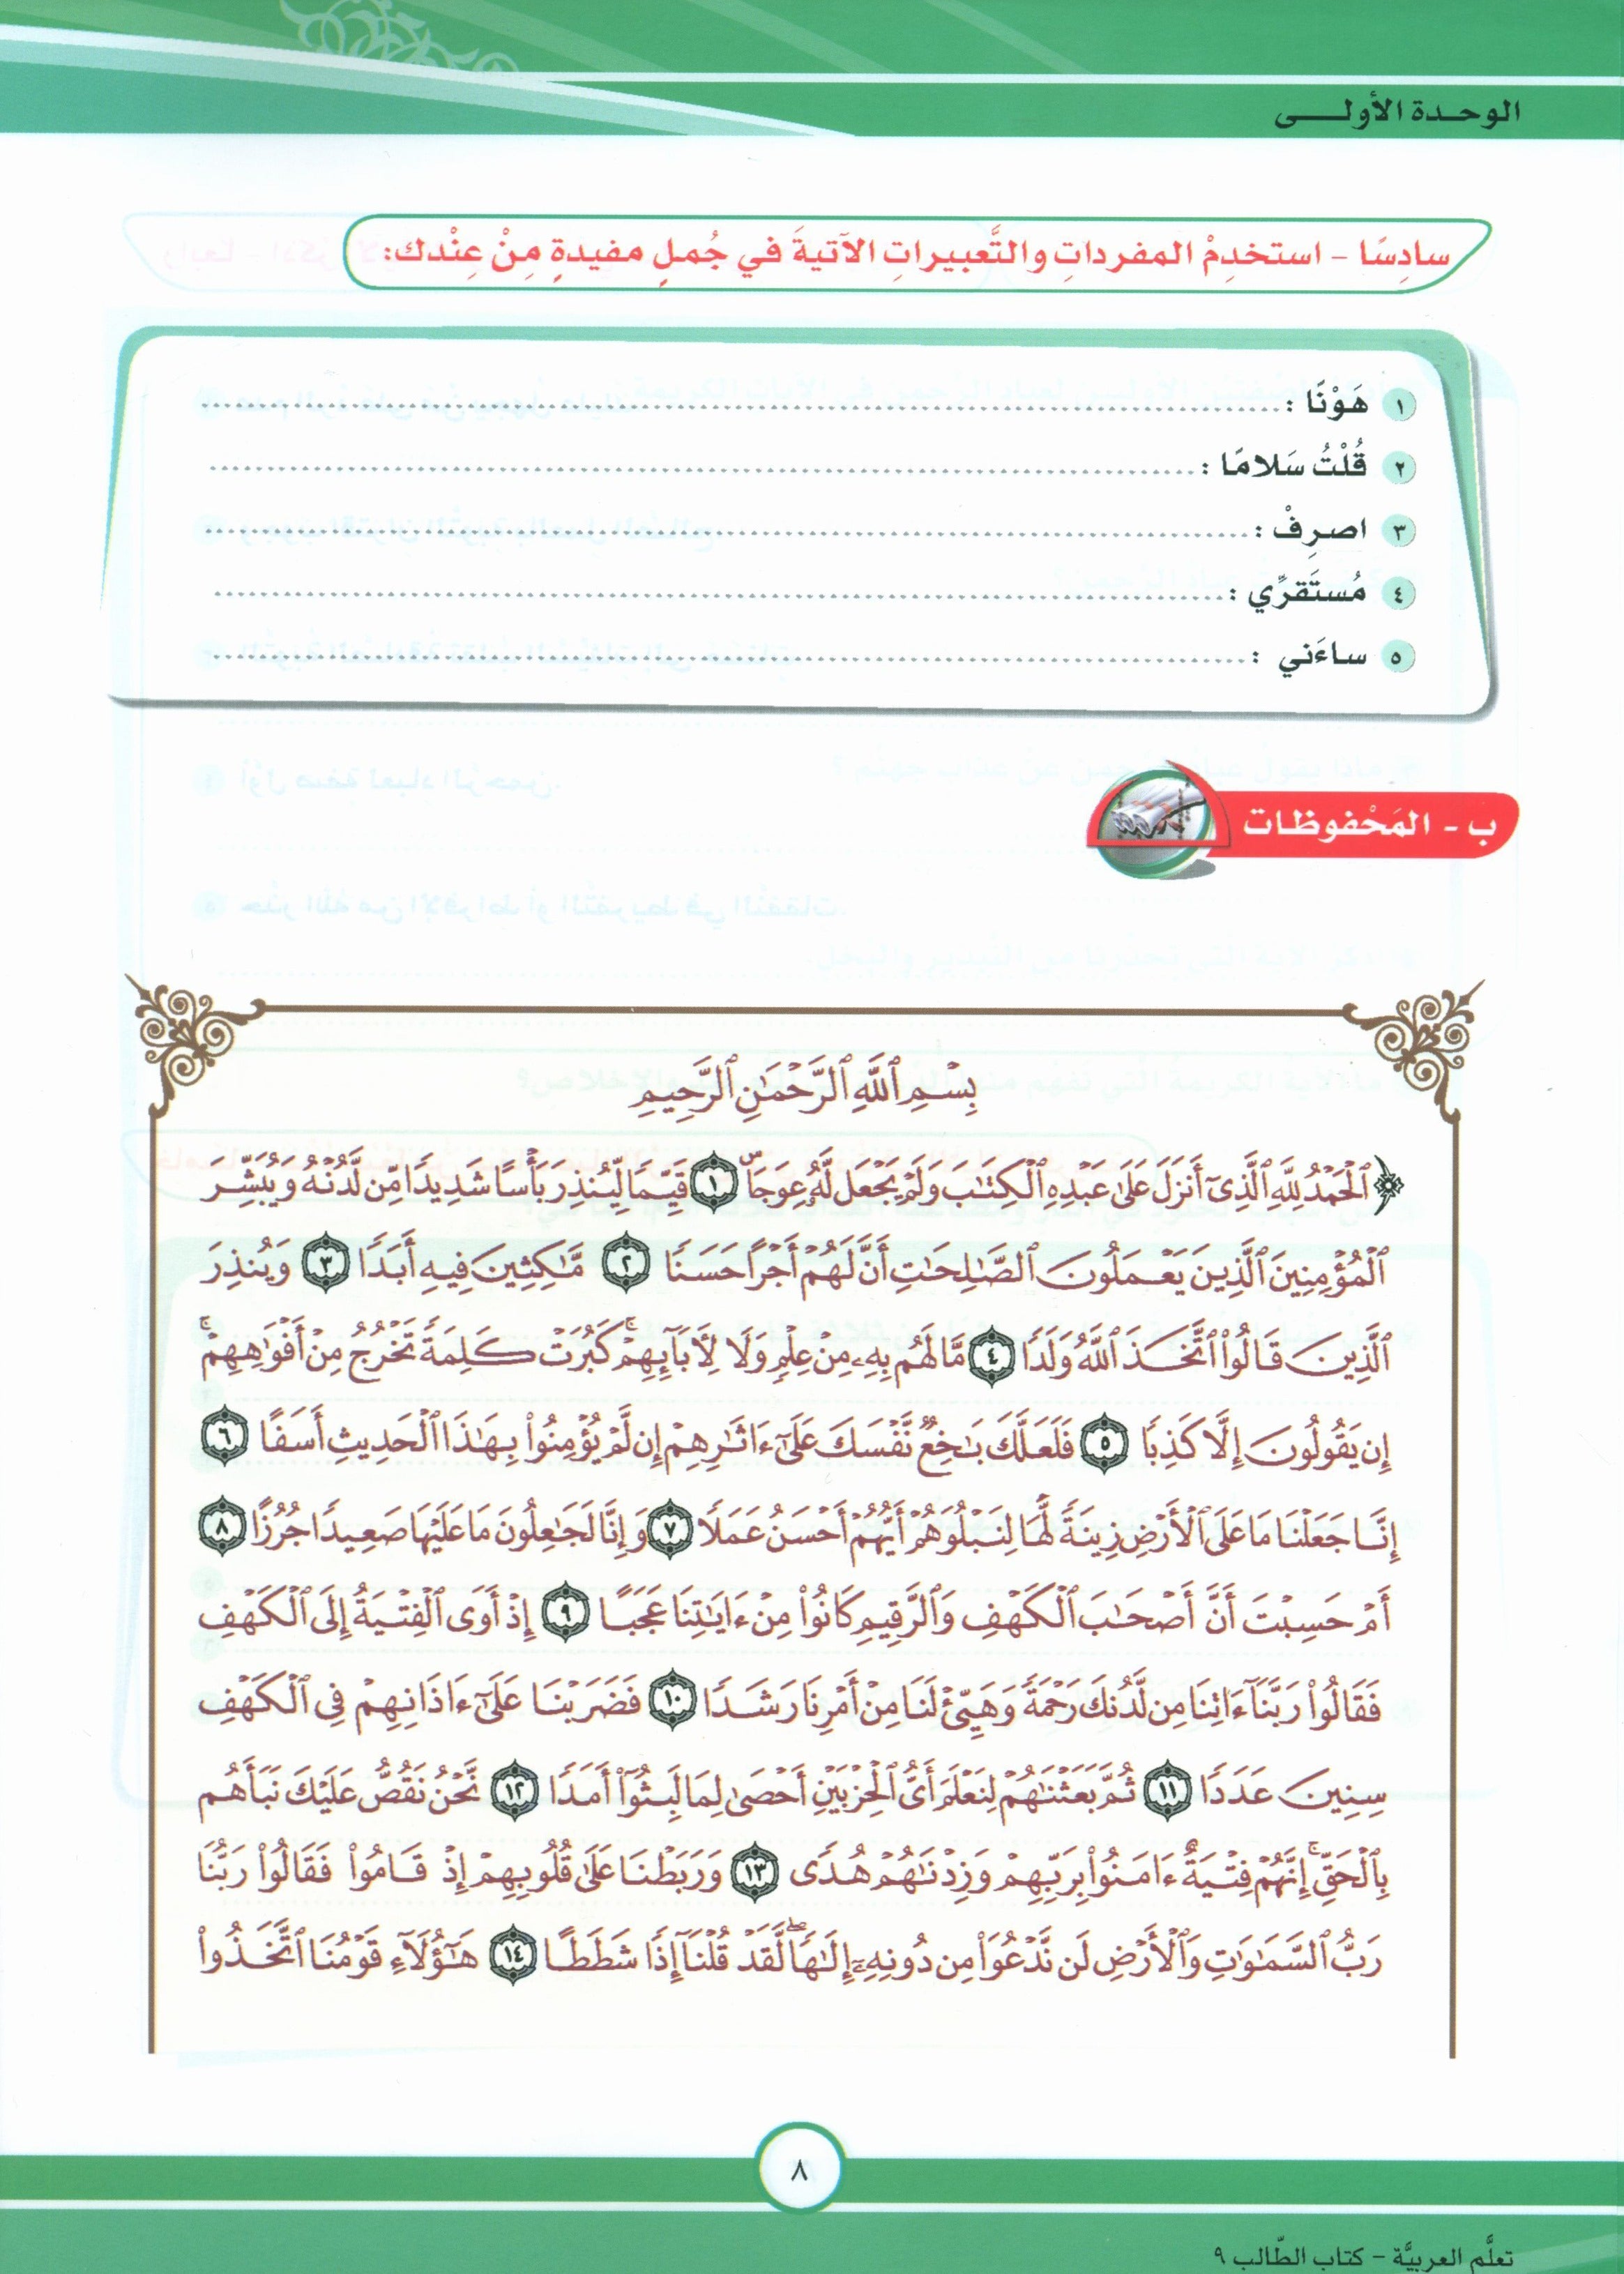 الوحـدة الأولـــى
سادِسًا - استخدِمْ المفرداتِ والتَّعبيراتِ الآتيةَ في جُملٍ مفيدةٍ مِنْ عِنْدك:
١ هَوْنًا :
٢ قُلْتُ سَلامًا :
٣ اصرِفْ :
٤ مُستَقرِّي :
٥ ساءَني :
ب - المَحْفوظات
بِسْمِ ٱللَّهِ ٱلرَّحْمَـٰنِ ٱلرَّحِيمِ
﴿ ٱلْحَمْدُ لِلَّهِ ٱلَّذِىٓ أَنزَلَ عَلَىٰ عَبْدِهِ ٱلْكِتَـٰبَ وَلَمْ يَجْعَل لَّهُۥ عِوَجَاۜ ١ قَيِّمًا لِّيُنذِرَ بَأْسًا شَدِيدًا مِّن لَّدُنْهُ وَيُبَشِّرَ
ٱلْمُؤْمِنِينَ ٱلَّذِينَ يَعْمَلُونَ ٱلصَّـٰلِحَـٰتِ أَنَّ لَهُمْ أَجْرًا حَسَنًا ٢ مَّـٰكِثِينَ فِيهِ أَبَدًا ٣ وَيُنذِرَ
ٱلَّذِينَ قَالُوا۟ ٱتَّخَذَ ٱللَّهُ وَلَدًا ٤ مَّا لَهُم بِهِۦ مِنْ عِلْمٍ وَلَا لِـَٔابَآئِهِمْ ۚ كَبُرَتْ كَلِمَةً تَخْرُجُ مِنْ أَفْوَٰهِهِمْ ۚ
إِن يَقُولُونَ إِلَّا كَذِبًا ٥ فَلَعَلَّكَ بَـٰخِعٌ نَّفْسَكَ عَلَىٰٓ ءَاثَـٰرِهِمْ إِن لَّمْ يُؤْمِنُوا۟ بِهَـٰذَا ٱلْحَدِيثِ أَسَفًا ٦
إِنَّا جَعَلْنَا مَا عَلَى ٱلْأَرْضِ زِينَةً لَّهَا لِنَبْلُوَهُمْ أَيُّهُمْ أَحْسَنُ عَمَلًا ٧ وَإِنَّا لَجَـٰعِلُونَ مَا عَلَيْهَا صَعِيدًا جُرُزًا ٨
أَمْ حَسِبْتَ أَنَّ أَصْحَـٰبَ ٱلْكَهْفِ وَٱلرَّقِيمِ كَانُوا۟ مِنْ ءَايَـٰتِنَا عَجَبًا ٩ إِذْ أَوَى ٱلْفِتْيَةُ إِلَى ٱلْكَهْفِ
فَقَالُوا۟ رَبَّنَآ ءَاتِنَا مِن لَّدُنكَ رَحْمَةً وَهَيِّئْ لَنَا مِنْ أَمْرِنَا رَشَدًا ١٠ فَضَرَبْنَا عَلَىٰٓ ءَاذَانِهِمْ فِى ٱلْكَهْفِ
سِنِينَ عَدَدًا ١١ ثُمَّ بَعَثْنَـٰهُمْ لِنَعْلَمَ أَىُّ ٱلْحِزْبَيْنِ أَحْصَىٰ لِمَا لَبِثُوٓا۟ أَمَدًا ١٢ نَّحْنُ نَقُصُّ عَلَيْكَ نَبَأَهُم
بِٱلْحَقِّ ۚ إِنَّهُمْ فِتْيَةٌ ءَامَنُوا۟ بِرَبِّهِمْ وَزِدْنَـٰهُمْ هُدًى ١٣ وَرَبَطْنَا عَلَىٰ قُلُوبِهِمْ إِذْ قَامُوا۟ فَقَالُوا۟ رَبُّنَا
رَبُّ ٱلسَّمَـٰوَٰتِ وَٱلْأَرْضِ لَن نَّدْعُوَا۟ مِن دُونِهِۦٓ إِلَـٰهًا ۖ لَّقَدْ قُلْنَآ إِذًا شَطَطًا ١٤ هَـٰٓؤُلَآءِ قَوْمُنَا ٱتَّخَذُوا۟
٨
تعلَّم العربيَّة - كتاب الطّالب ٩